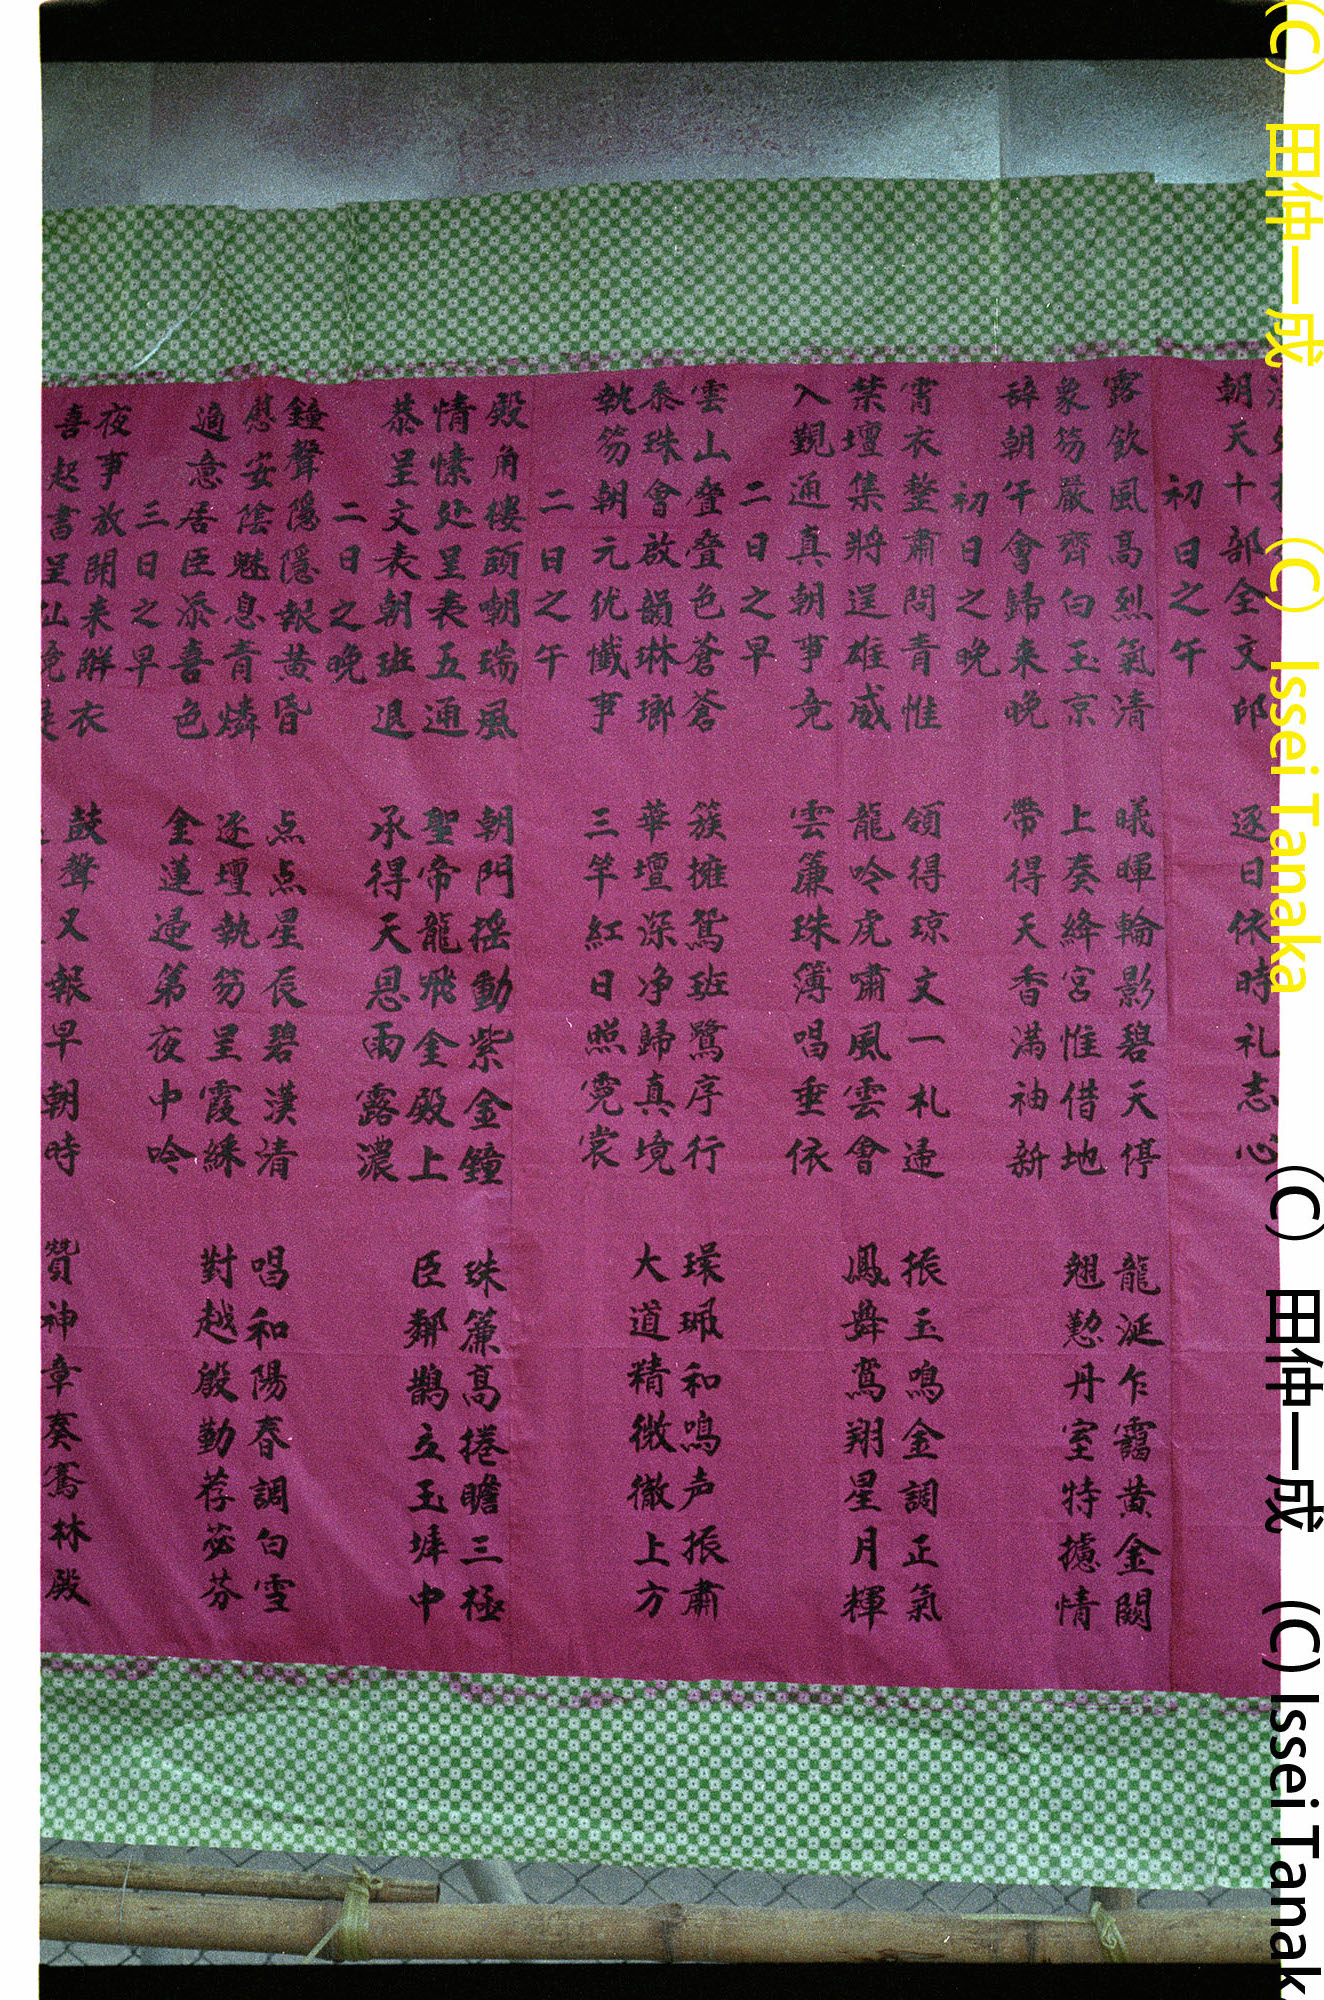 朝天十部全文部　逐日依時礼志心
初日之午
露飲風高烈氣清　曦暉輪影碧天停　龍涎乍靄黃金闕
象笏嚴齊白玉京　上奏絳宮惟借地　翹懃丹室特攄情
辞朝午會歸来晚　帶得天香滿袖新
初日之晚
宵衣整肅問青惟　領得琼文一札遞　振玉鳴金調正氣
禁壇集將逞雄威　龍吟虎嘯風雲會　鳳舞鸞翔星月輝
入覲通真朝事竟　雲簾珠簿唱垂依
二日之早
雲山叠叠色蒼蒼　簇擁鴛班鷺序行　環珮和鳴声振肅
黍珠會啟韻琳瑯　華壇深净歸真境　大道精微徹上方
執笏朝元优懺事　三竿紅日照霓裳
二日之午
殿角楼頭朝瑞風　朝門摇動紫金鐘　珠簾高捲瞻三極
情愫处呈表五通　聖帝龍飛金殿上　臣鄰鵲立玉墀中
恭呈文表朝班退　承得天恩雨露濃
二日之晚
鐘聲隱隱報黃昏　点点星辰碧漢清　唱和陽春調白雪
慰安陰魅息青燐　逐壇執笏呈霞綵　對越殷勤荐苾芬
適意居臣添喜色　金蓮遞第夜中吟
三日之早
夜事放開来解衣　鼓聲又報早朝時　贊神章奏騫林殿
喜起書呈仙境
(C) 田仲一成　(C) Issei Tanaka
(C) 田仲一成　(C) Issei Tanak